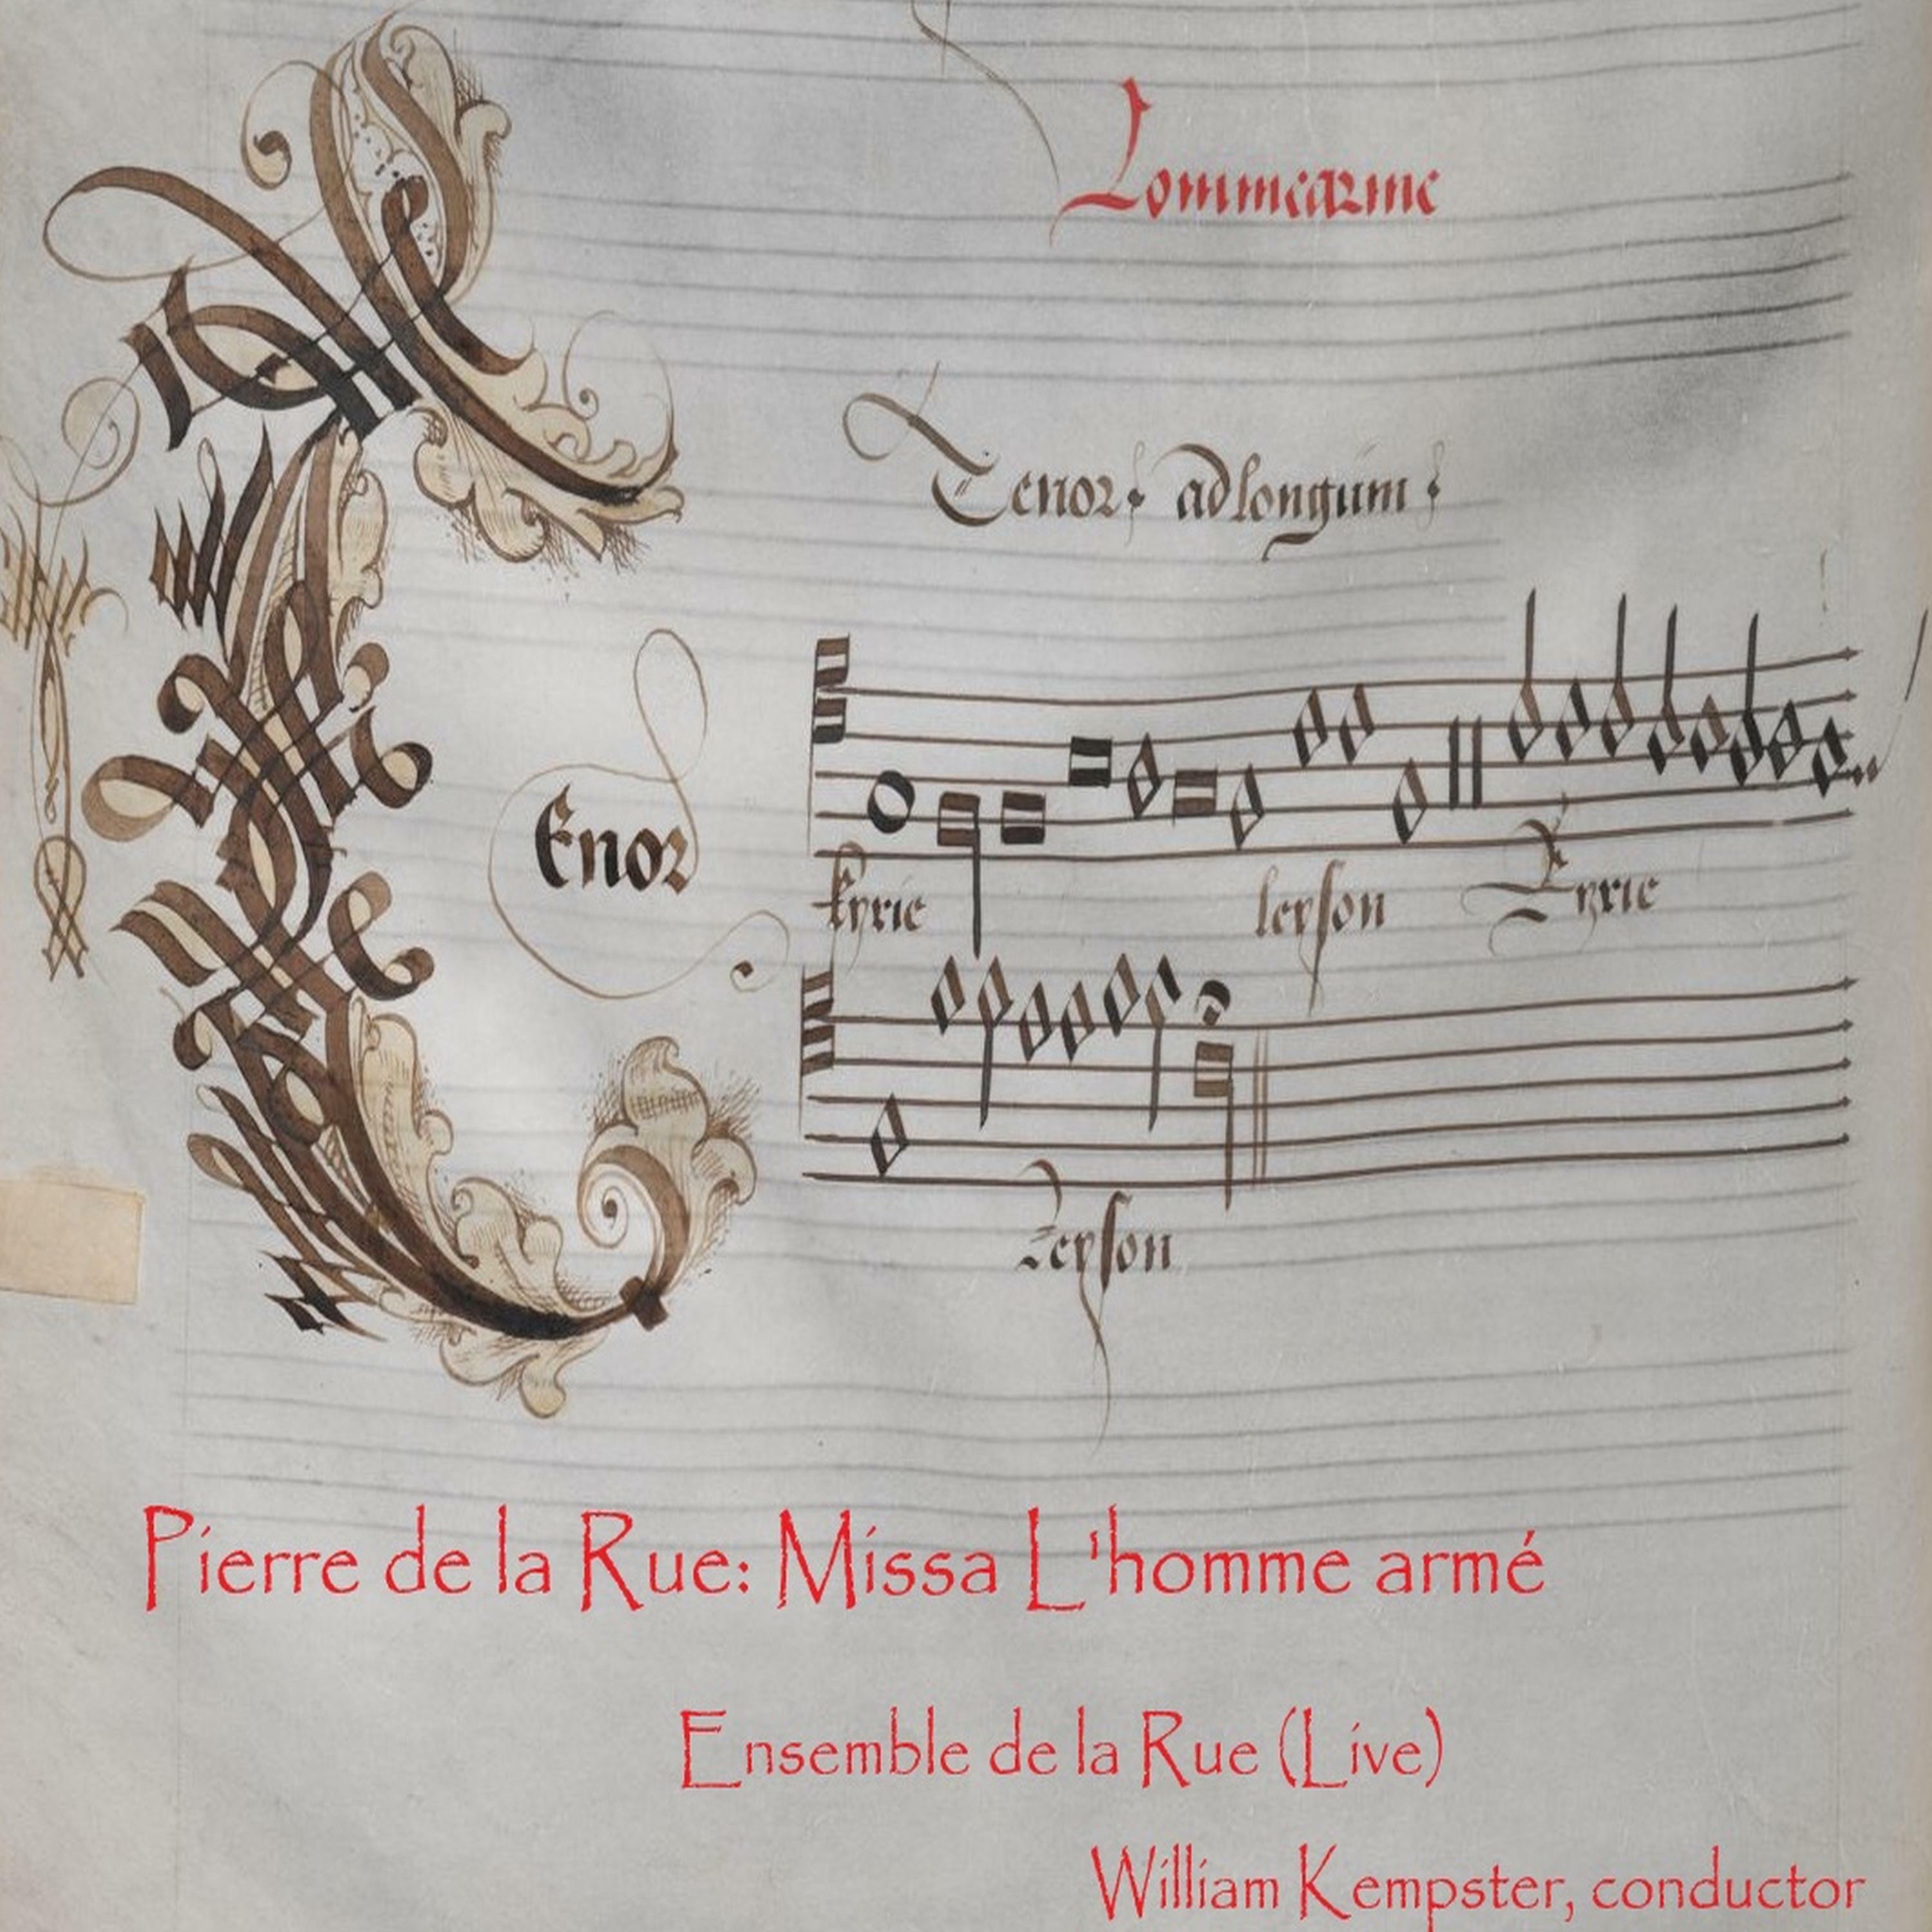 Lommearme
Tenor ad longum
Tenor
kyrie leyson Kyrie
Leyson
Pierre de la Rue: Missa L'homme armé
Ensemble de la Rue (Live)
William Kempster, conductor